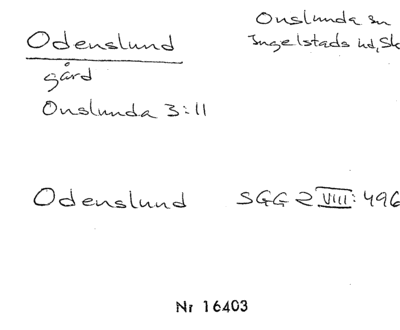 Odenslund
Onslunda sn
Ingelstads hd, Sk
gård
Onslunda 3:11
Odenslund
SGG 2 VIII: 496
Nr 16403